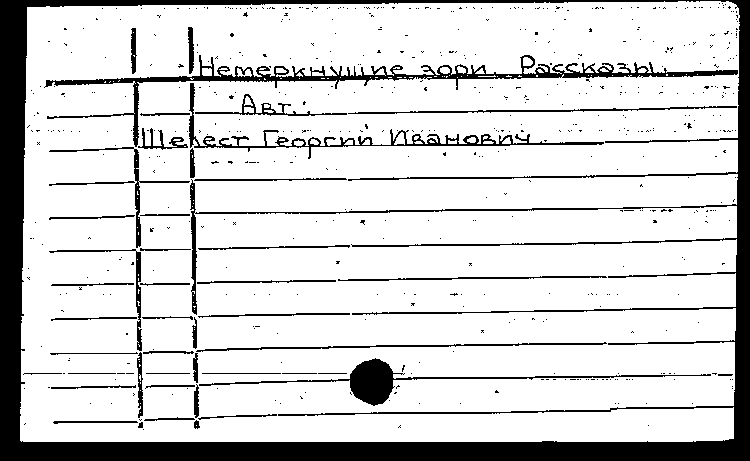 Немеркнущие зори. Рассказы.
Авт.:
Шелест, Георгий Иванович.